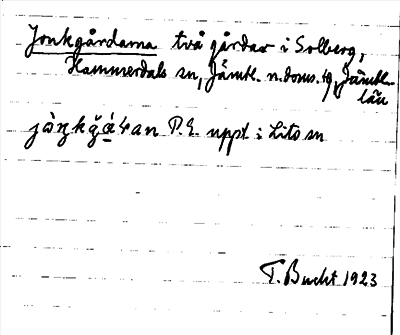 Jonkgårdarna två gårdar i Solberg,
Hammerdals sn, Jämtl. n. doms. tg, Jämtl.
län
P.E. uppt. i Lits sn
T. Bucht 1923